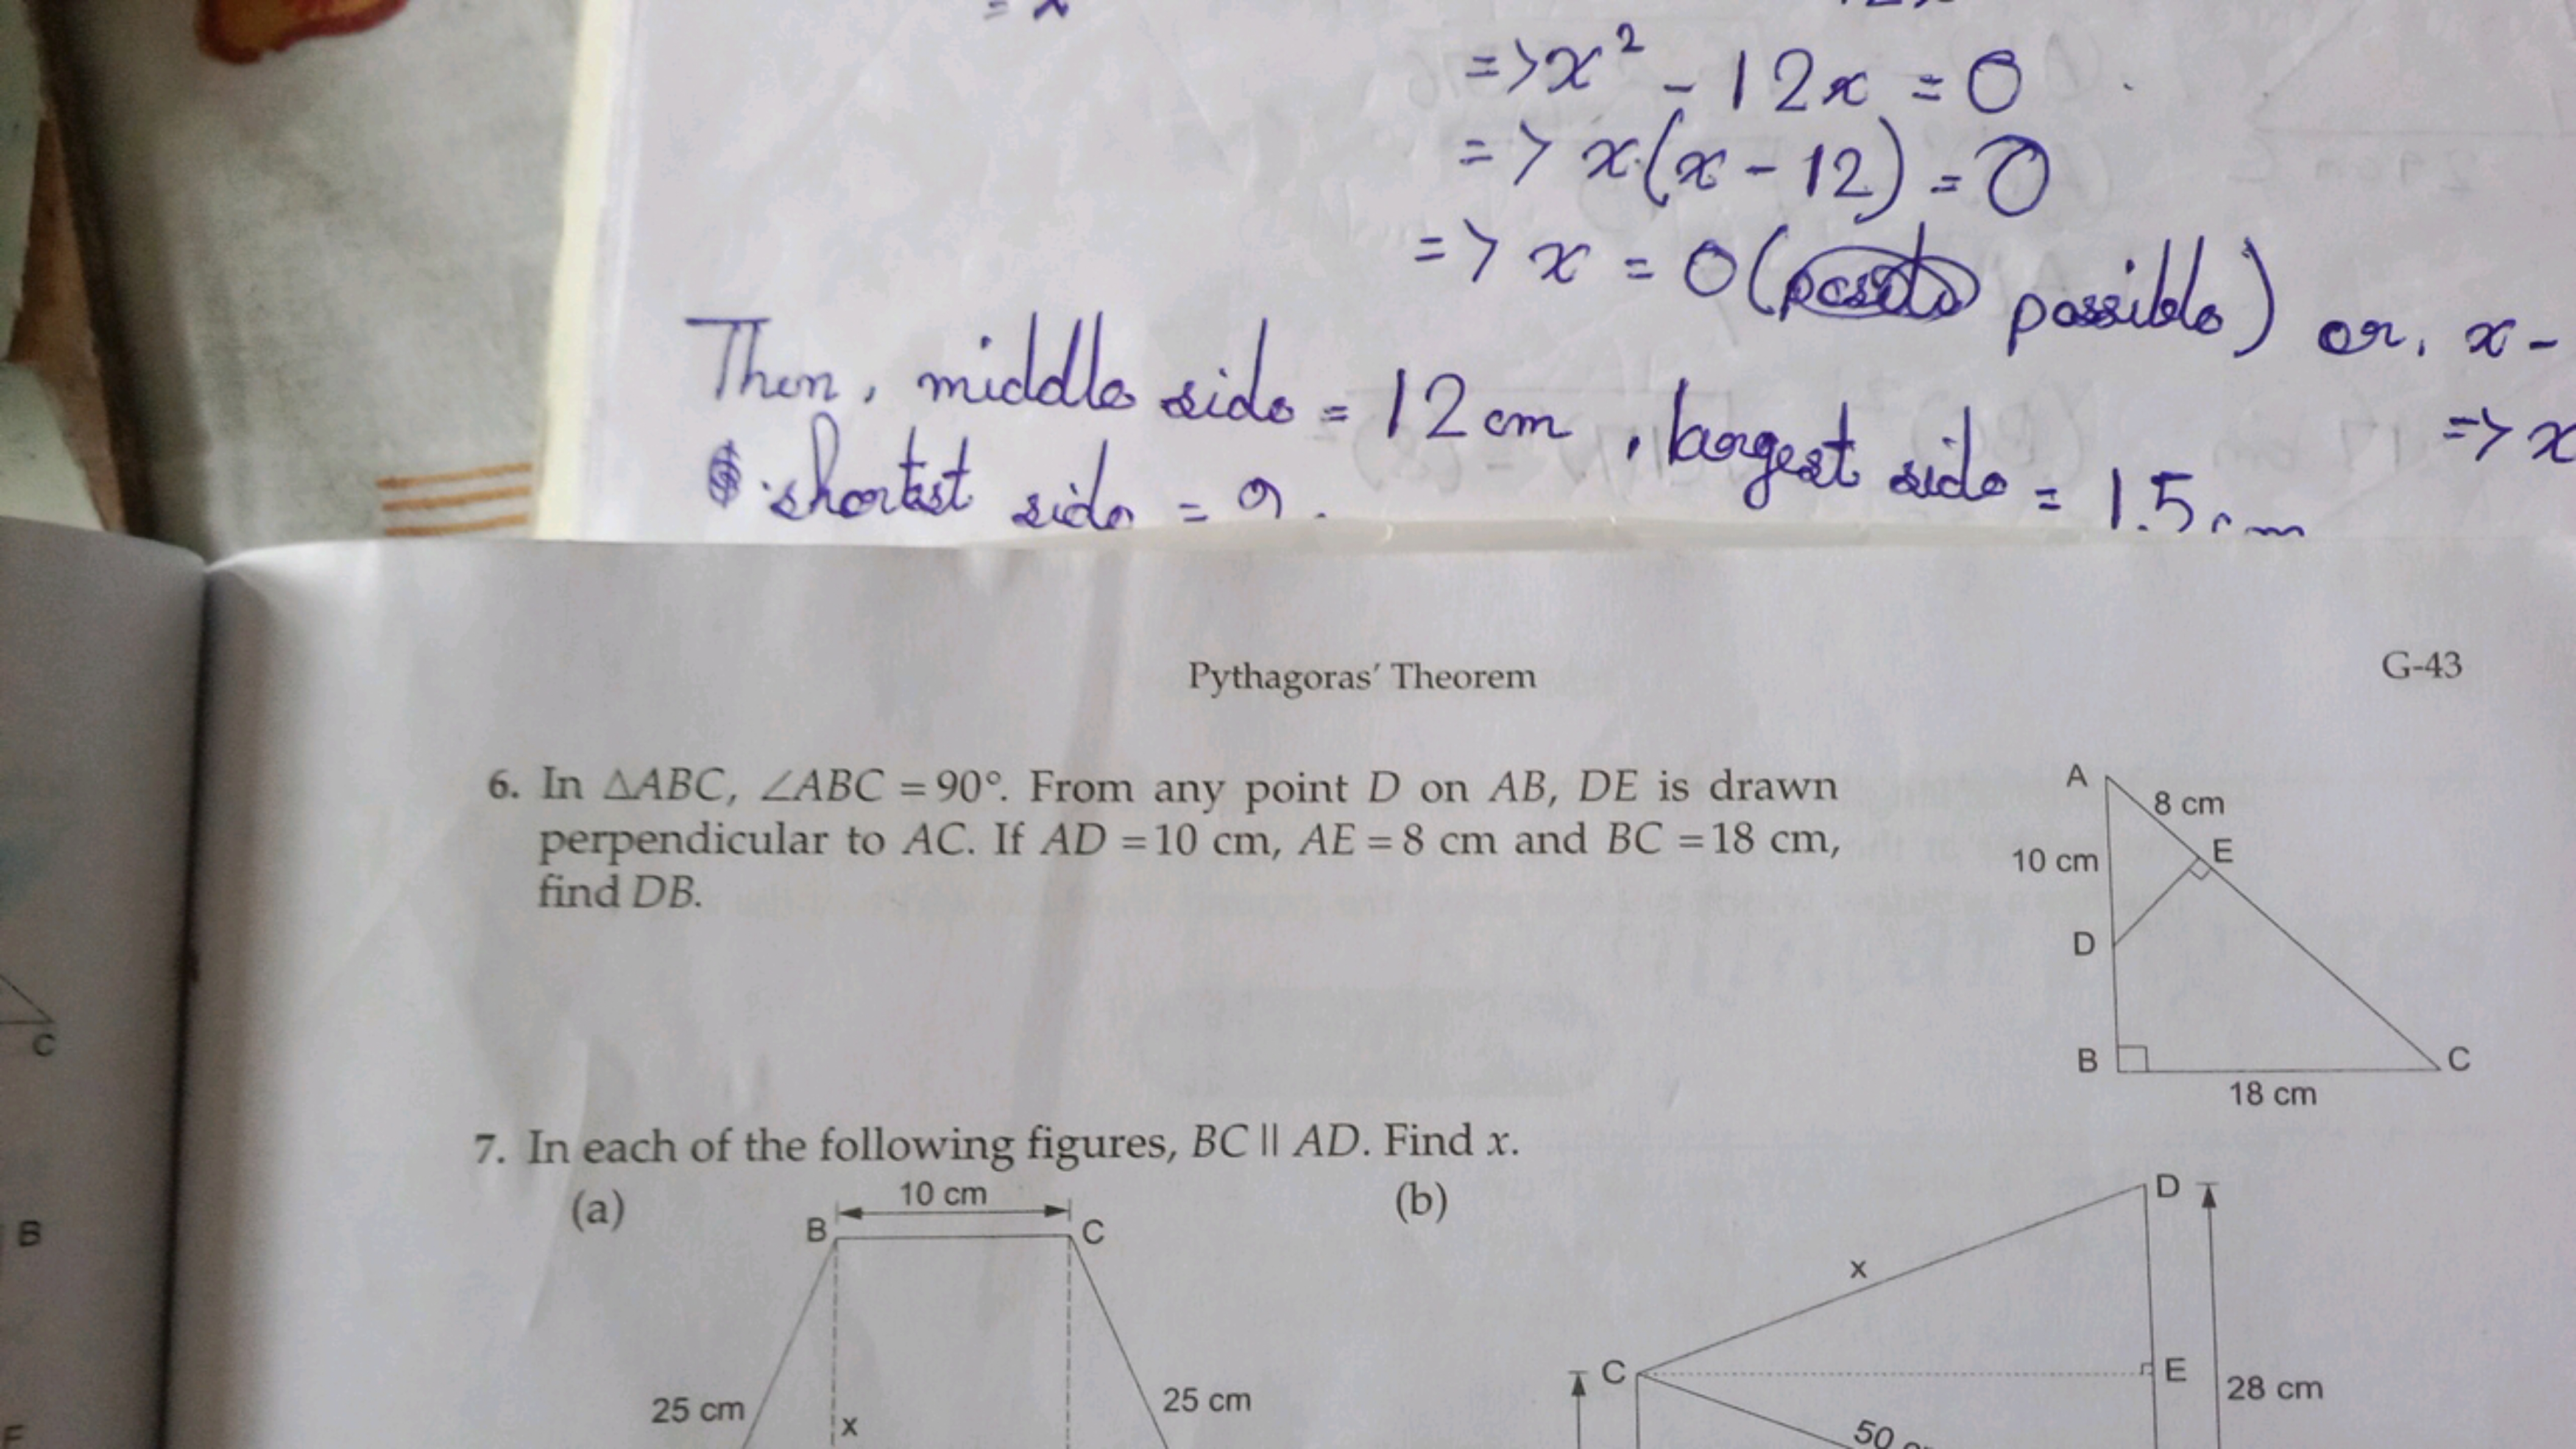 =>x² - 12x = 0
=> x(x - 12) = 0
=> x = 0 (possible) or, x -
=> x
Then, middle side = 12 cm, largest side = 15 cm
shortest side = 9
Pythagoras' Theorem
G-43
6. In △ABC, ∠ABC = 90°. From any point D on AB, DE is drawn
perpendicular to AC. If AD = 10 cm, AE = 8 cm and BC = 18 cm,
find DB.
A
8 cm
10 cm
E
D
B
C
18 cm
7. In each of the following figures, BC || AD. Find x.
(a)
10 cm
B
C
25 cm
x
25 cm
(b)
D
x
C
E
28 cm
50
C
B